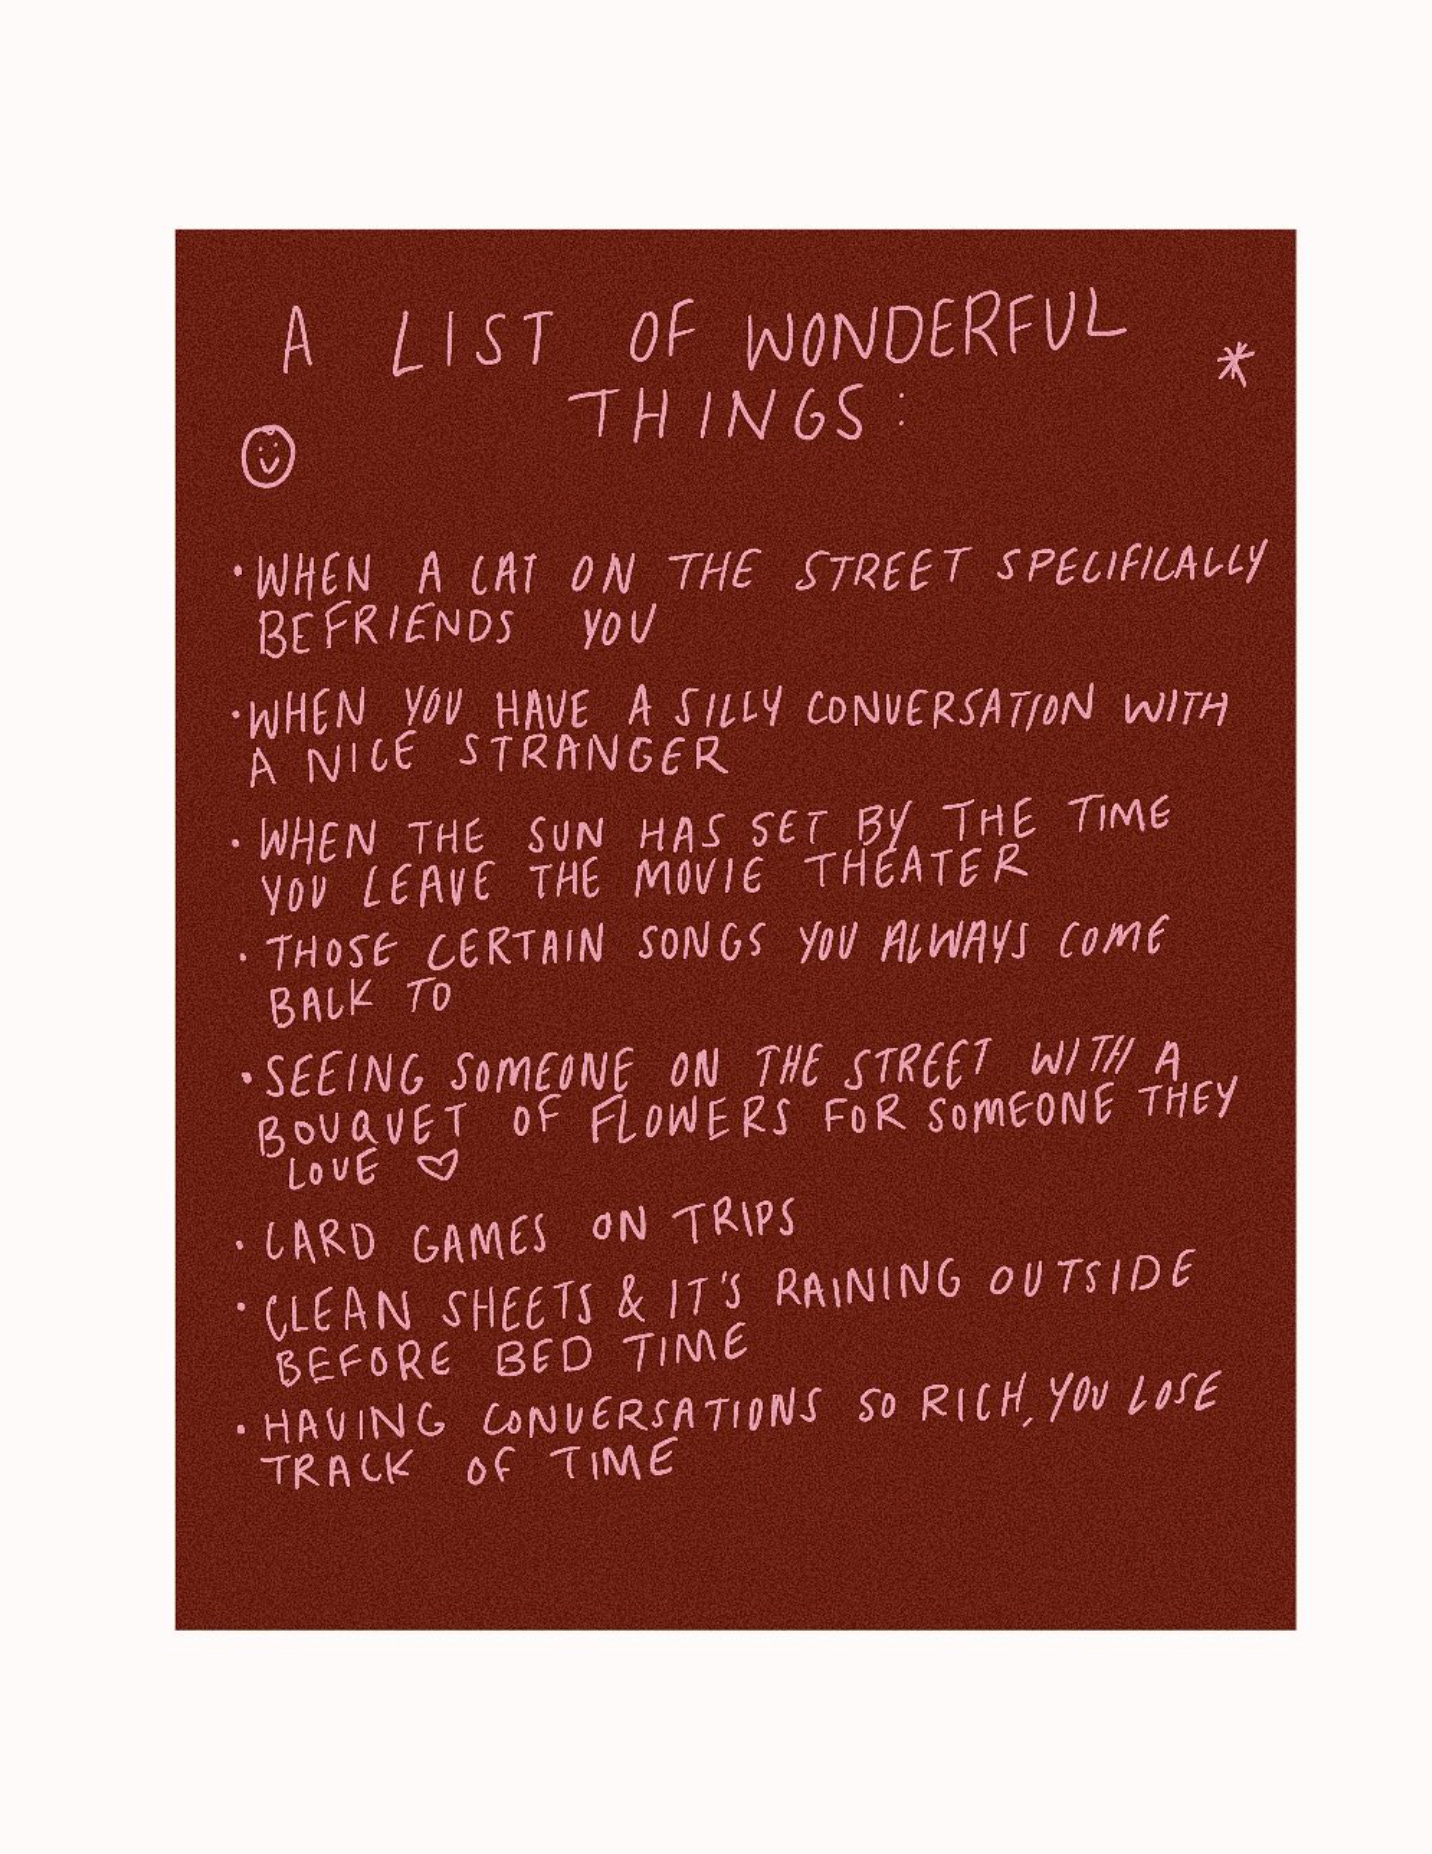 A LIST OF WONDERFUL
THINGS:
• WHEN A CAT ON THE STREET SPECIFICALLY
BEFRIENDS YOU
• WHEN YOU HAVE A SILLY CONVERSATION WITH
A NICE STRANGER
• WHEN THE SUN HAS SET BY THE TIME
YOU LEAVE THE MOVIE THEATER
• THOSE CERTAIN SONGS YOU ALWAYS COME
BACK TO
• SEEING SOMEONE ON THE STREET WITH A
BOUQUET OF FLOWERS FOR SOMEONE THEY
LOVE ♡
• CARD GAMES ON TRIPS
• CLEAN SHEETS & IT'S RAINING OUTSIDE
BEFORE BED TIME
• HAVING CONVERSATIONS SO RICH, YOU LOSE
TRACK OF TIME